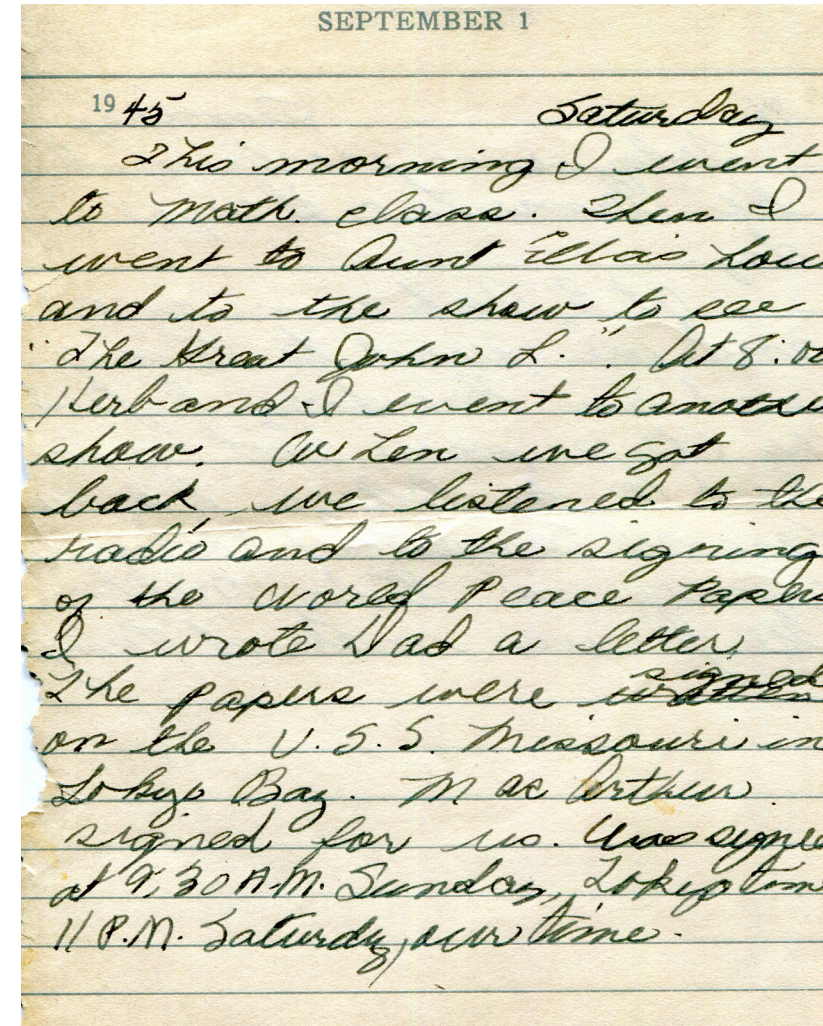 SEPTEMBER 1
19 45 Saturday
This morning I went
to Math. class. Then I
went to Aunt Ella's hou
and to the show to see
"The Great John L.". At 8:00
Herb and I went to anothe
show. When we got
back, we listened to the
radio and to the signing
of the World Peace Papers
I wrote Dad a letter.
signed
The papers were written
on the U.S.S. Missouri in
Tokyo Bay. Mac Arthur
signed for us. Was signe
at 9:30 A.M. Sunday, Tokyo tim
11 P.M. Saturdy, our time.